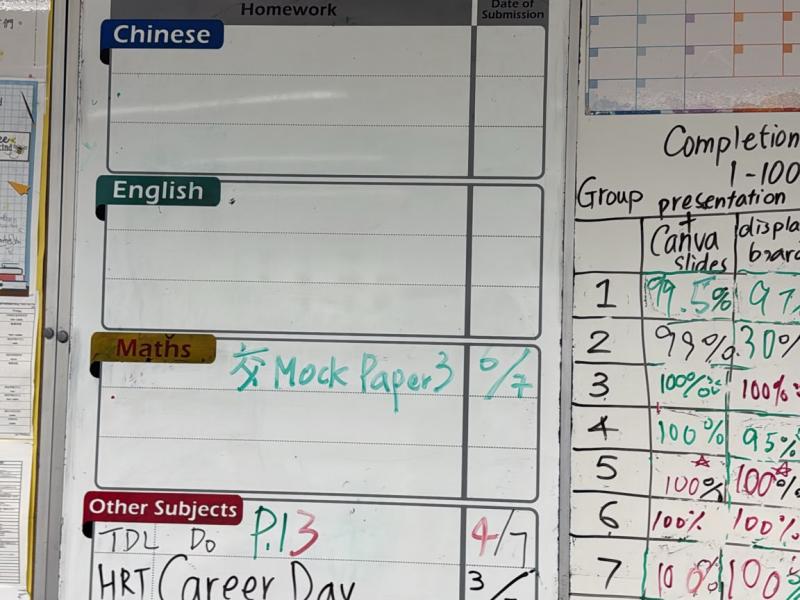 Homework
Date of Submission
Chinese
English
Maths
交 Mock Paper3 6/7
Other Subjects
TDL Do P.13 4/7
HRT Career Day 3/
Completion
1-100
Group presentation
Canva slides
1 99.5% 97
2 99% 30%
3 100% 100%
4 100% 95%
5 100% 100%
6 100% 100%
7 100% 100